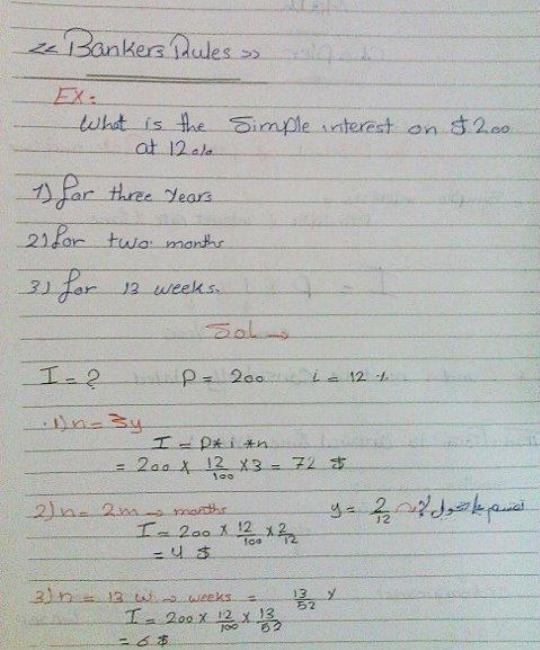 << Bankers Rules >>
EX:
What is the Simple interest on $200
at 12%
1) for three Years
2) for two months
3) for 13 weeks.
Sol →
I = ? P = 200 i = 12 %
1) n = 3y
I = P * i * n
= 200 × 12/100 × 3 = 72 $
2) n = 2m → months y = 2/12
I = 200 × 12/100 × 2/12
= 4 $
3) n = 13 w → weeks = 13/52 y
I = 200 × 12/100 × 13/52
= 6 $